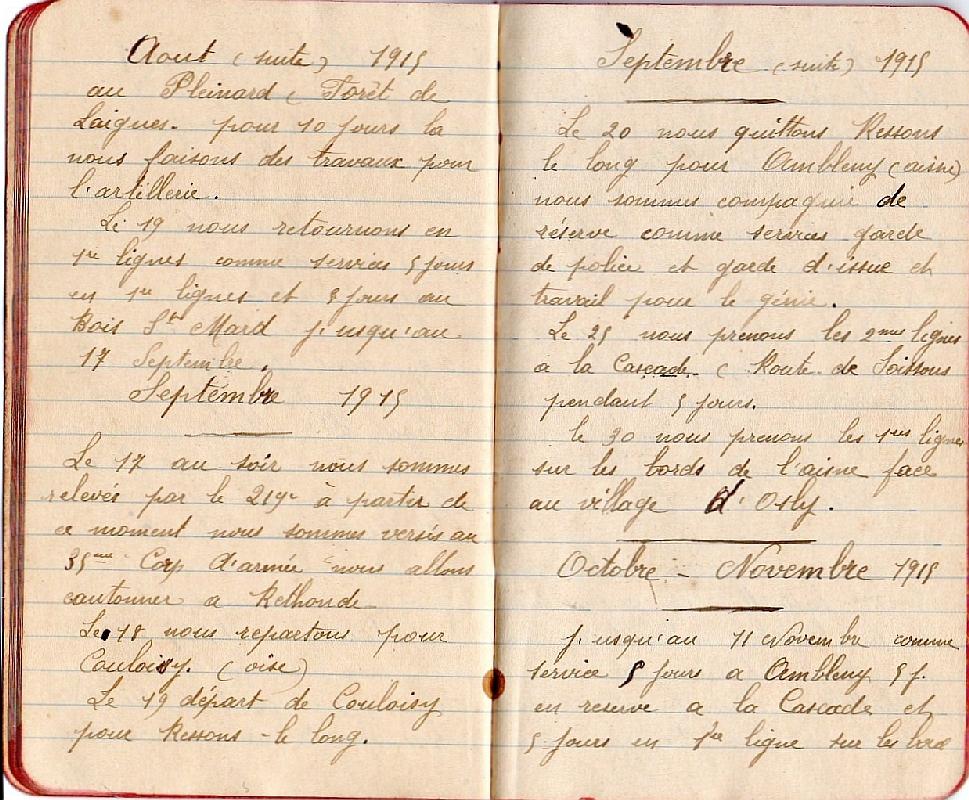 Aout (suite) 1915
au Pleinard (Foret de
Laigues. pour 10 jours la
nous faisons des travaux pour
l'artillerie.
Le 19 nous retournons en
1re lignes comme services 5 jours
en 1re lignes et 5 jours au
Bois St Mard jusqu'au
17 Septembre.
Septembre 1915
Le 17 au soir nous sommes
relevés par le 219e à partir de
ce moment nous sommes versés au
35me Corp d'armée nous allons
cantonner a Rethonde
Le 18 nous repartons pour
Couloisy. (oise)
Le 19 départ de Couloisy
pour Ressons-le long.
Septembre (suite) 1915
Le 20 nous quittons Ressons
le long pour Ambleny (aisne)
nous sommes compagnie de
réserve comme services garde
de police et garde d'issue et
travail pour le génie.
Le 25 nous prenons les 2mes lignes
a la Cascade (Route de Soissons
pendant 5 jours.
le 30 nous prenons les 1res lignes
sur les bords de l'aisne face
au village d'Osly.
Octobre - Novembre 1915
jusqu'au 11 Novembre comme
service 5 jours a Ambleny 5 j.
en reserve a la Cascade et
5 jours en 1re ligne sur les bord